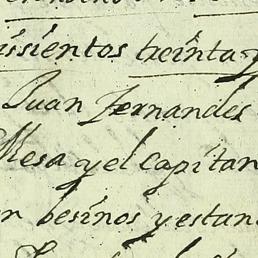 issientos treinta y
Juan Fernandes
Mesa y el capitan
n besinos y estan